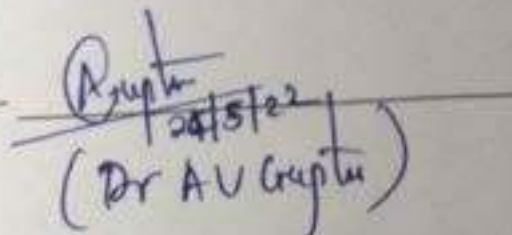 AGupta
24/5/22
(Dr A V Gupta)